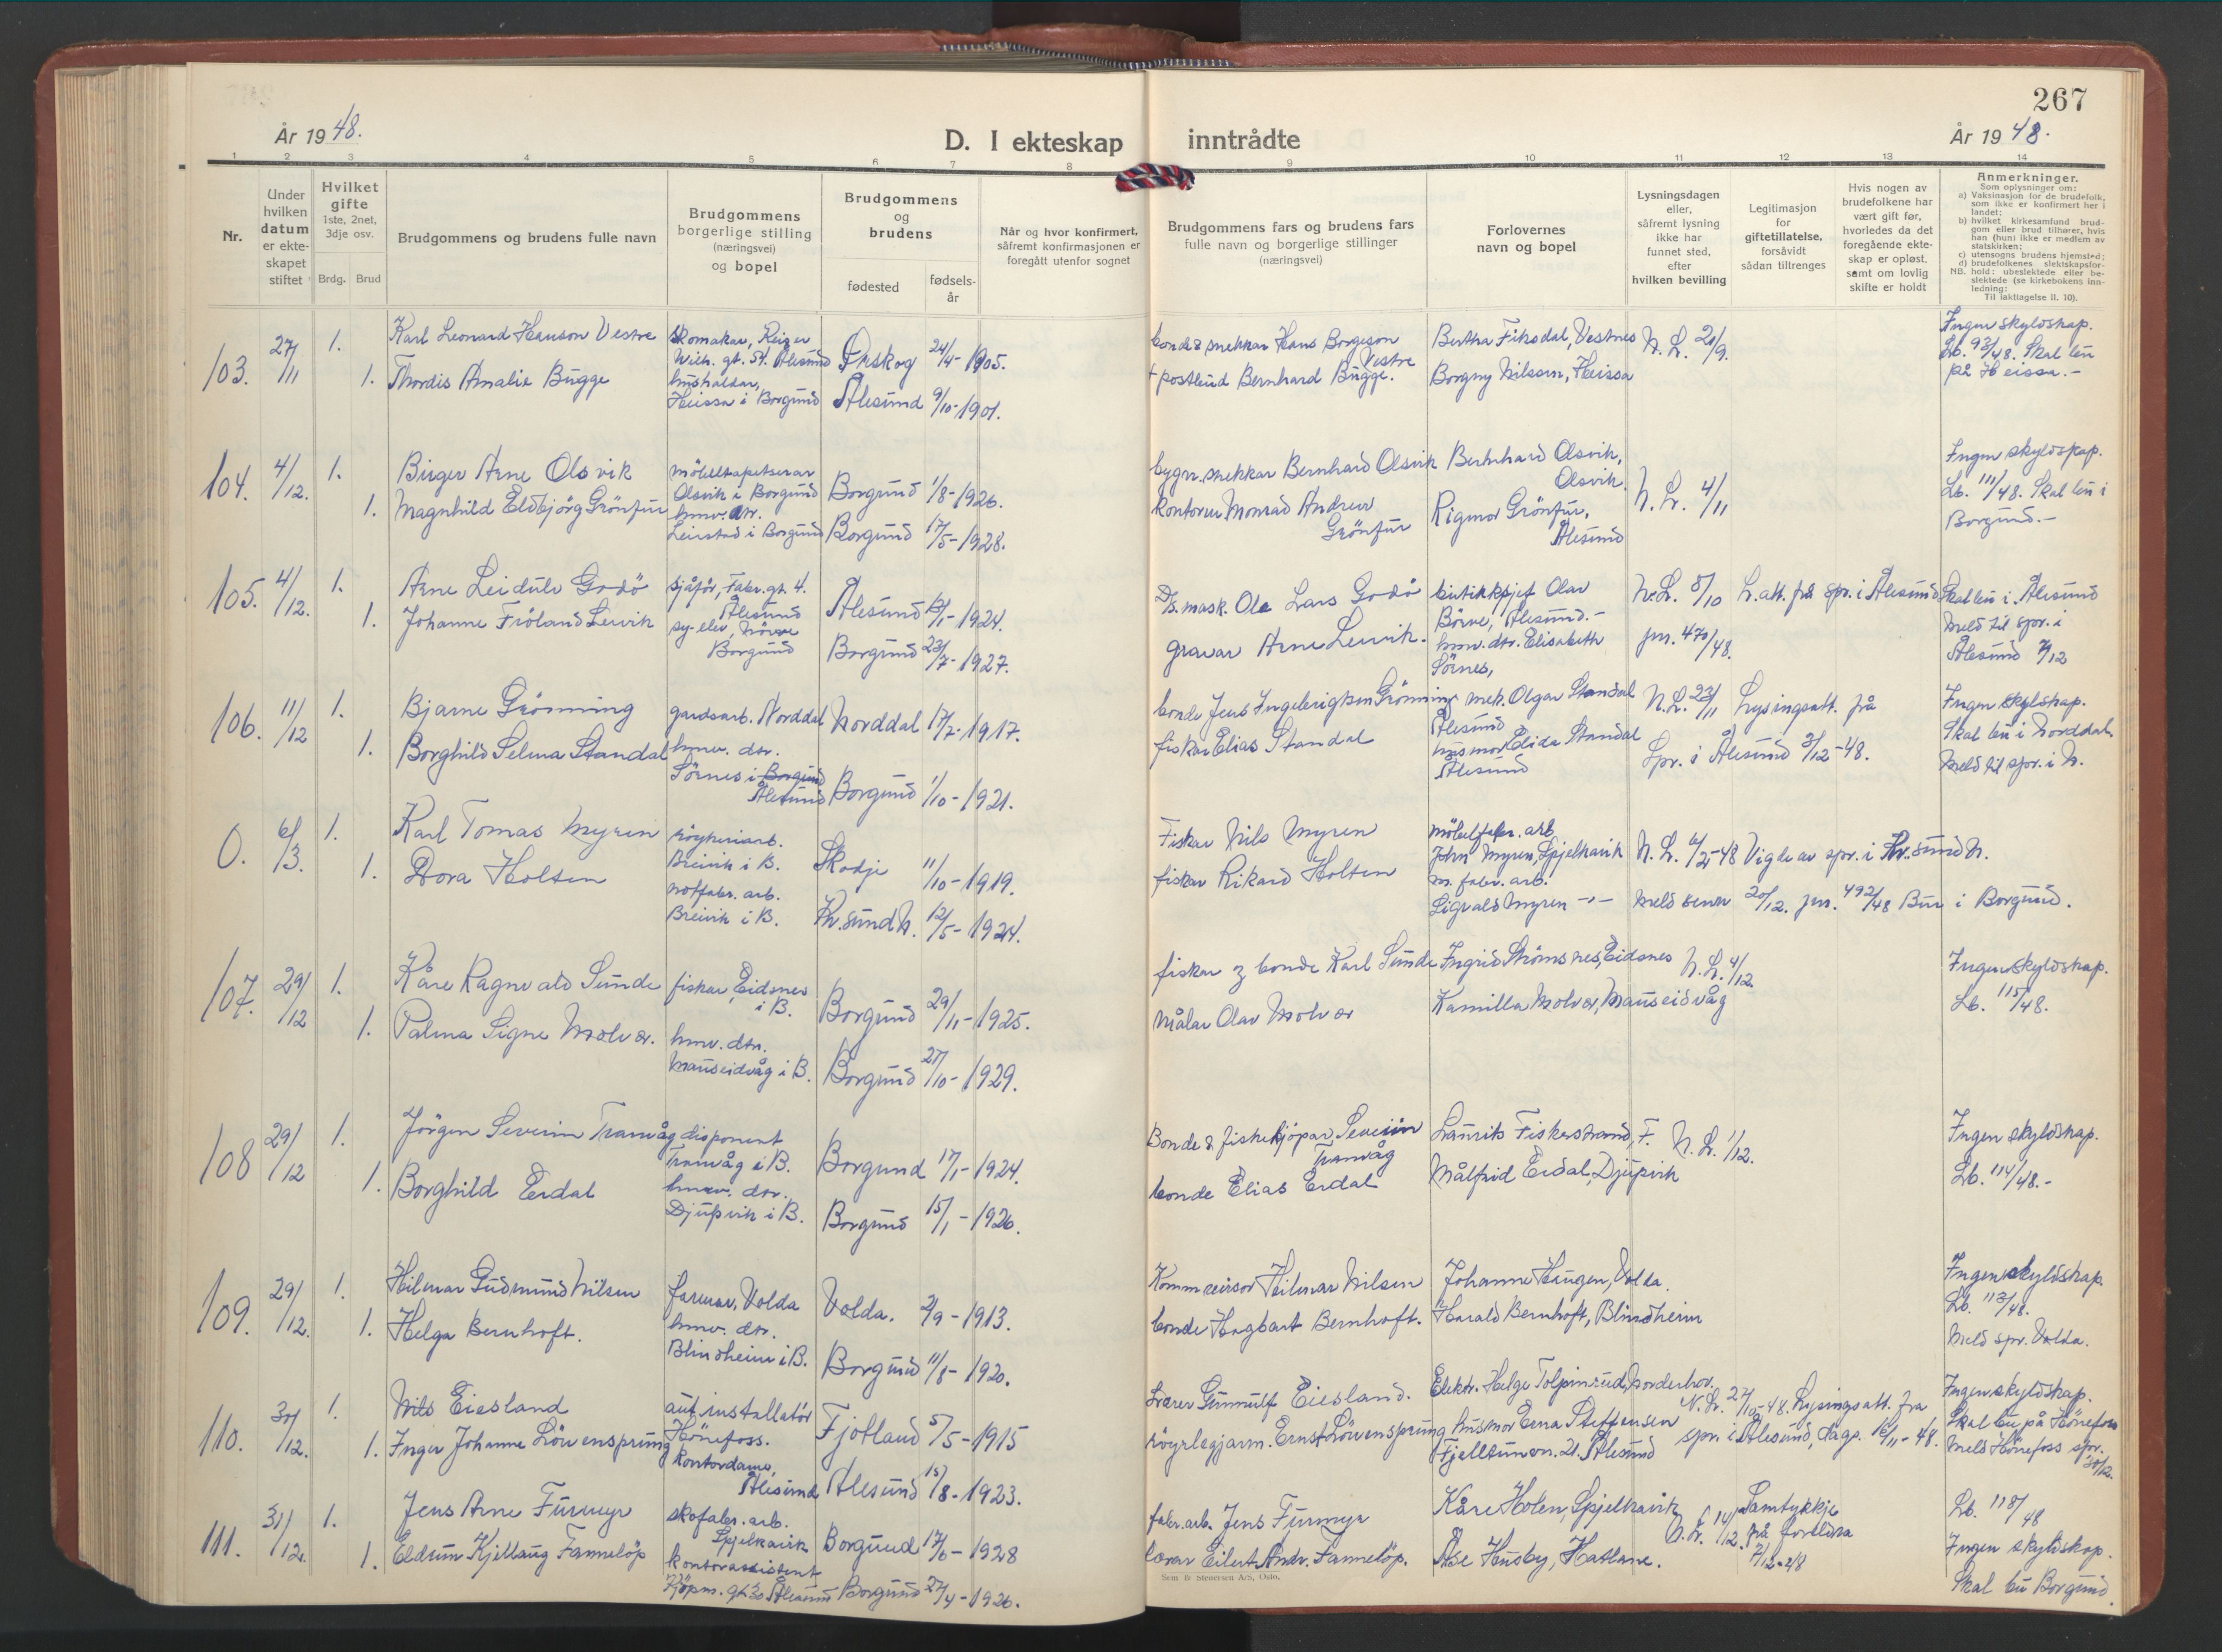 267
År 1948.
D. I ekteskap inntrådte
År 1948.
1 2 3 4 5 6 7 8 9 10 11 12 13 14
Nr.
Under hvilken datum er ekteskapet stiftet
Hvilket gifte 1ste, 2net, 3dje osv.
Brdg. Brud
Brudgommens og brudens fulle navn
Brudgommens borgerlige stilling (næringsvei) og bopel
Brudgommens og brudens
fødested
fødsels-år
Når og hvor konfirmert, såfremt konfirmasjonen er foregått utenfor sognet
Brudgommens fars og brudens fars fulle navn og borgerlige stillinger (næringsvei)
Forlovernes navn og bopel
Lysningsdagen eller, såfremt lysning ikke har funnet sted, efter hvilken bevilling
Legitimasjon for giftetillatelse, forsåvidt sådan tiltrenges
Hvis nogen av brudefolkene har vært gift før, hvorledes da det foregående ekteskap er opløst, samt om lovlig skifte er holdt
Anmerkninger.
Som oplysninger om:
a) Vaksinasjon for de brudefolk, som ikke er konfirmert her i landet;
b) hvilket kirkesamfund brudgom eller brud tilhører, hvis han (hun) ikke er medlem av statskirken;
c) utensogns brudens hjemsted;
d) brudefolkenes slektskapsforhold: ubeslektede eller beslektede (se kirkebokens innledning:
NB.
Til iakttagelse II. 10).
103. 27/11 1. Karl Leonard Hanson Vestre skomakar, Keiser Wilh. gt. 54. Ålesund Ørskog 24/4-1905.
1. Thordis Amalie Bugge hushaldar, Heissa i Borgund Ålesund 9/10-1901.
bonde & snekkar Hans Borgeson Vestre
+ postbud Bernhard Bugge.
Bertha Fiksdal, Vestnes
Borgny Nilssen, Heissa
N. L. 20/9.
Ingen skyldskap.
Lb. 93/48. Skal bu
på Heissa.-
104. 4/12. 1. Birger Arne Olsvik möbeltapetserar Olsvik i Borgund Borgund 1/8-1926.
1. Magnhild Eldbjörg Grönfur hmv. dtr. Leirstad i Borgund Borgund 17/5-1928.
bygn. snekkar Bernhard Olsvik
kontorm Monrad Andreas Grönfur
Bernhard Olsvik, Olsvik.
Rigmor Grönfur, Ålesund
N. L. 4/11
Ingen skyldskap.
Lb. 111/48. Skal bu i
Borgund.-
105. 4/12. 1. Arne Leidulv Godö sjåför, Fabr. gt. 4. Ålesund Ålesund -1924.
1. Johanne Fröland Leivik sy-elev, Nörve Borgund Borgund 23/7-1927.
Ds. mask. Ole Lars Godö
gravar Arne Leivik.
butikksjef Olav Börve, Ålesund.-
hmv. dtr. Elisabeth Sörnes,
N. L. 8/10 L. att. frå spr. i Ålesund
jnr. 470/48.
Skal bu i Ålesund
Meld til spr. i
Ålesund 7/12
106. 11/12 1. Bjarne Grönning gardsarb. Norddal Norddal 17/7-1917.
1. Borghild Selma Standal hmv. dtr. Sörnes i Borgund Ålesund Borgund 1/10-1921.
bonde Jens Ingebrigtsen Grönning
fiskar Elias Standal
mek. Olgar Standal Ålesund
husmor Elida Standal Ålesund
N. L. 23/11 Lysingsatt. frå
Spr. i Ålesund 3/12-48.
Ingen skyldskap.
Skal bu i Norddal.
Meld til spr. i N.
0. 6/3. 1. Karl Tomas Myren röykeriarb. Breivik i B. Skodje 11/10-1919.
1. Dora Holsen notfabr. arb. Breivik i B. Kr. sund N. 12/5-1924.
Fiskar Nils Myren
fiskar Rikard Holten
möbelfabr. arb. John Myren, Spjelkavik
m. fabr. arb. Sigvald Myren -"-
N. L. 6/2-48 Vigde av spr. i Kr. sund N.
Meld senn 20/12. jnr. 492/48 Bur i Borgund.
107. 29/12 1. Kåre Ragnvald Sunde fiskar, Eidsnes i B. Borgund 29/11-1925.
1. Palma Signe Molvær. hmv. dtr. Mauseidvåg i B. Borgund 27/10-1929.
fiskar & bonde Karl Sunde
Målar Olav Molvær
Ingrid Strömsnes, Eidsnes
Kamilla Molvær, Mauseidvåg
N. L. 4/12.
Ingen skyldskap.
Lb. 115/48.
108 29/12 1. Jörgen Severin Tranvåg disponent Tranvåg i B. Borgund 17/1-1924.
1. Borghild Erdal hmv. dtr. Djupvik i B. Borgund 15/1-1926.
Bonde & fiskekjöpar Severin Tranvåg
bonde Elias Erdal
Laurits Fiskerstrand, F.
Målfrid Erdal, Djupvik
N. L. 1/12.
Ingen skyldskap.
Lb. 114/48.-
109. 29/12. 1. Hilmar Gudmund Nilsen farmar, Volda Volda. 2/9-1913.
1. Helga Bernhoft. hmv. dtr. Blindheim i B. Borgund 11/8-1920.
Komm revisor Hilmar Nilsen
bonde Hagbart Bernhoft.
Johanne Haugen, Volda.
Harald Bernhoft, Blindheim
Ingen skyldskap.
Lb. 113/48.
Meld spr. Volda.
110. 30/12. 1. Nils Eiesland aut installatör Hönefoss. Fjotland 5/5-1915
1. Inger Johanne Löwensprung Kontordame, Ålesund Ålesund 15/8-1923.
Lærer Gunnulf Eiesland.
röyrleggjarm. Ernst Löwensprung
Elektr. Helge Tolpinrud, Norderhov.
husmor Erna Steffensen Fjelltunvn. 21. Ålesund
N. L. 27/10-48. Lysingsatt. fra
spr. i Ålesund, dags. 16/11-48.
Ingen skyldskap.
Skal bu på Hönefoss
Meld Hönefoss spr. 30/12.
111. 31/12. 1. Jens Arne Furmyr skofabr. arb. Spjelkavik Borgund 17/6-1928
1. Eldrun Kjellaug Fannelöp kontorassistent Kjöpm. gt 30 Ålesund Borgund 27/4-1926.
fabr. arb. Jens Furmyr
lærar Eilert Andr. Fannelöp.
Kåre Holen, Spjelkavik
Åse Husby, Hatlane.
N. L. 14/12. Samtykkje
frå foreldra
7/12-48
Lb. 118/48
Ingen skyldskap.
Skal bu Borgund.
Sem & Stenersen A/S, Oslo.